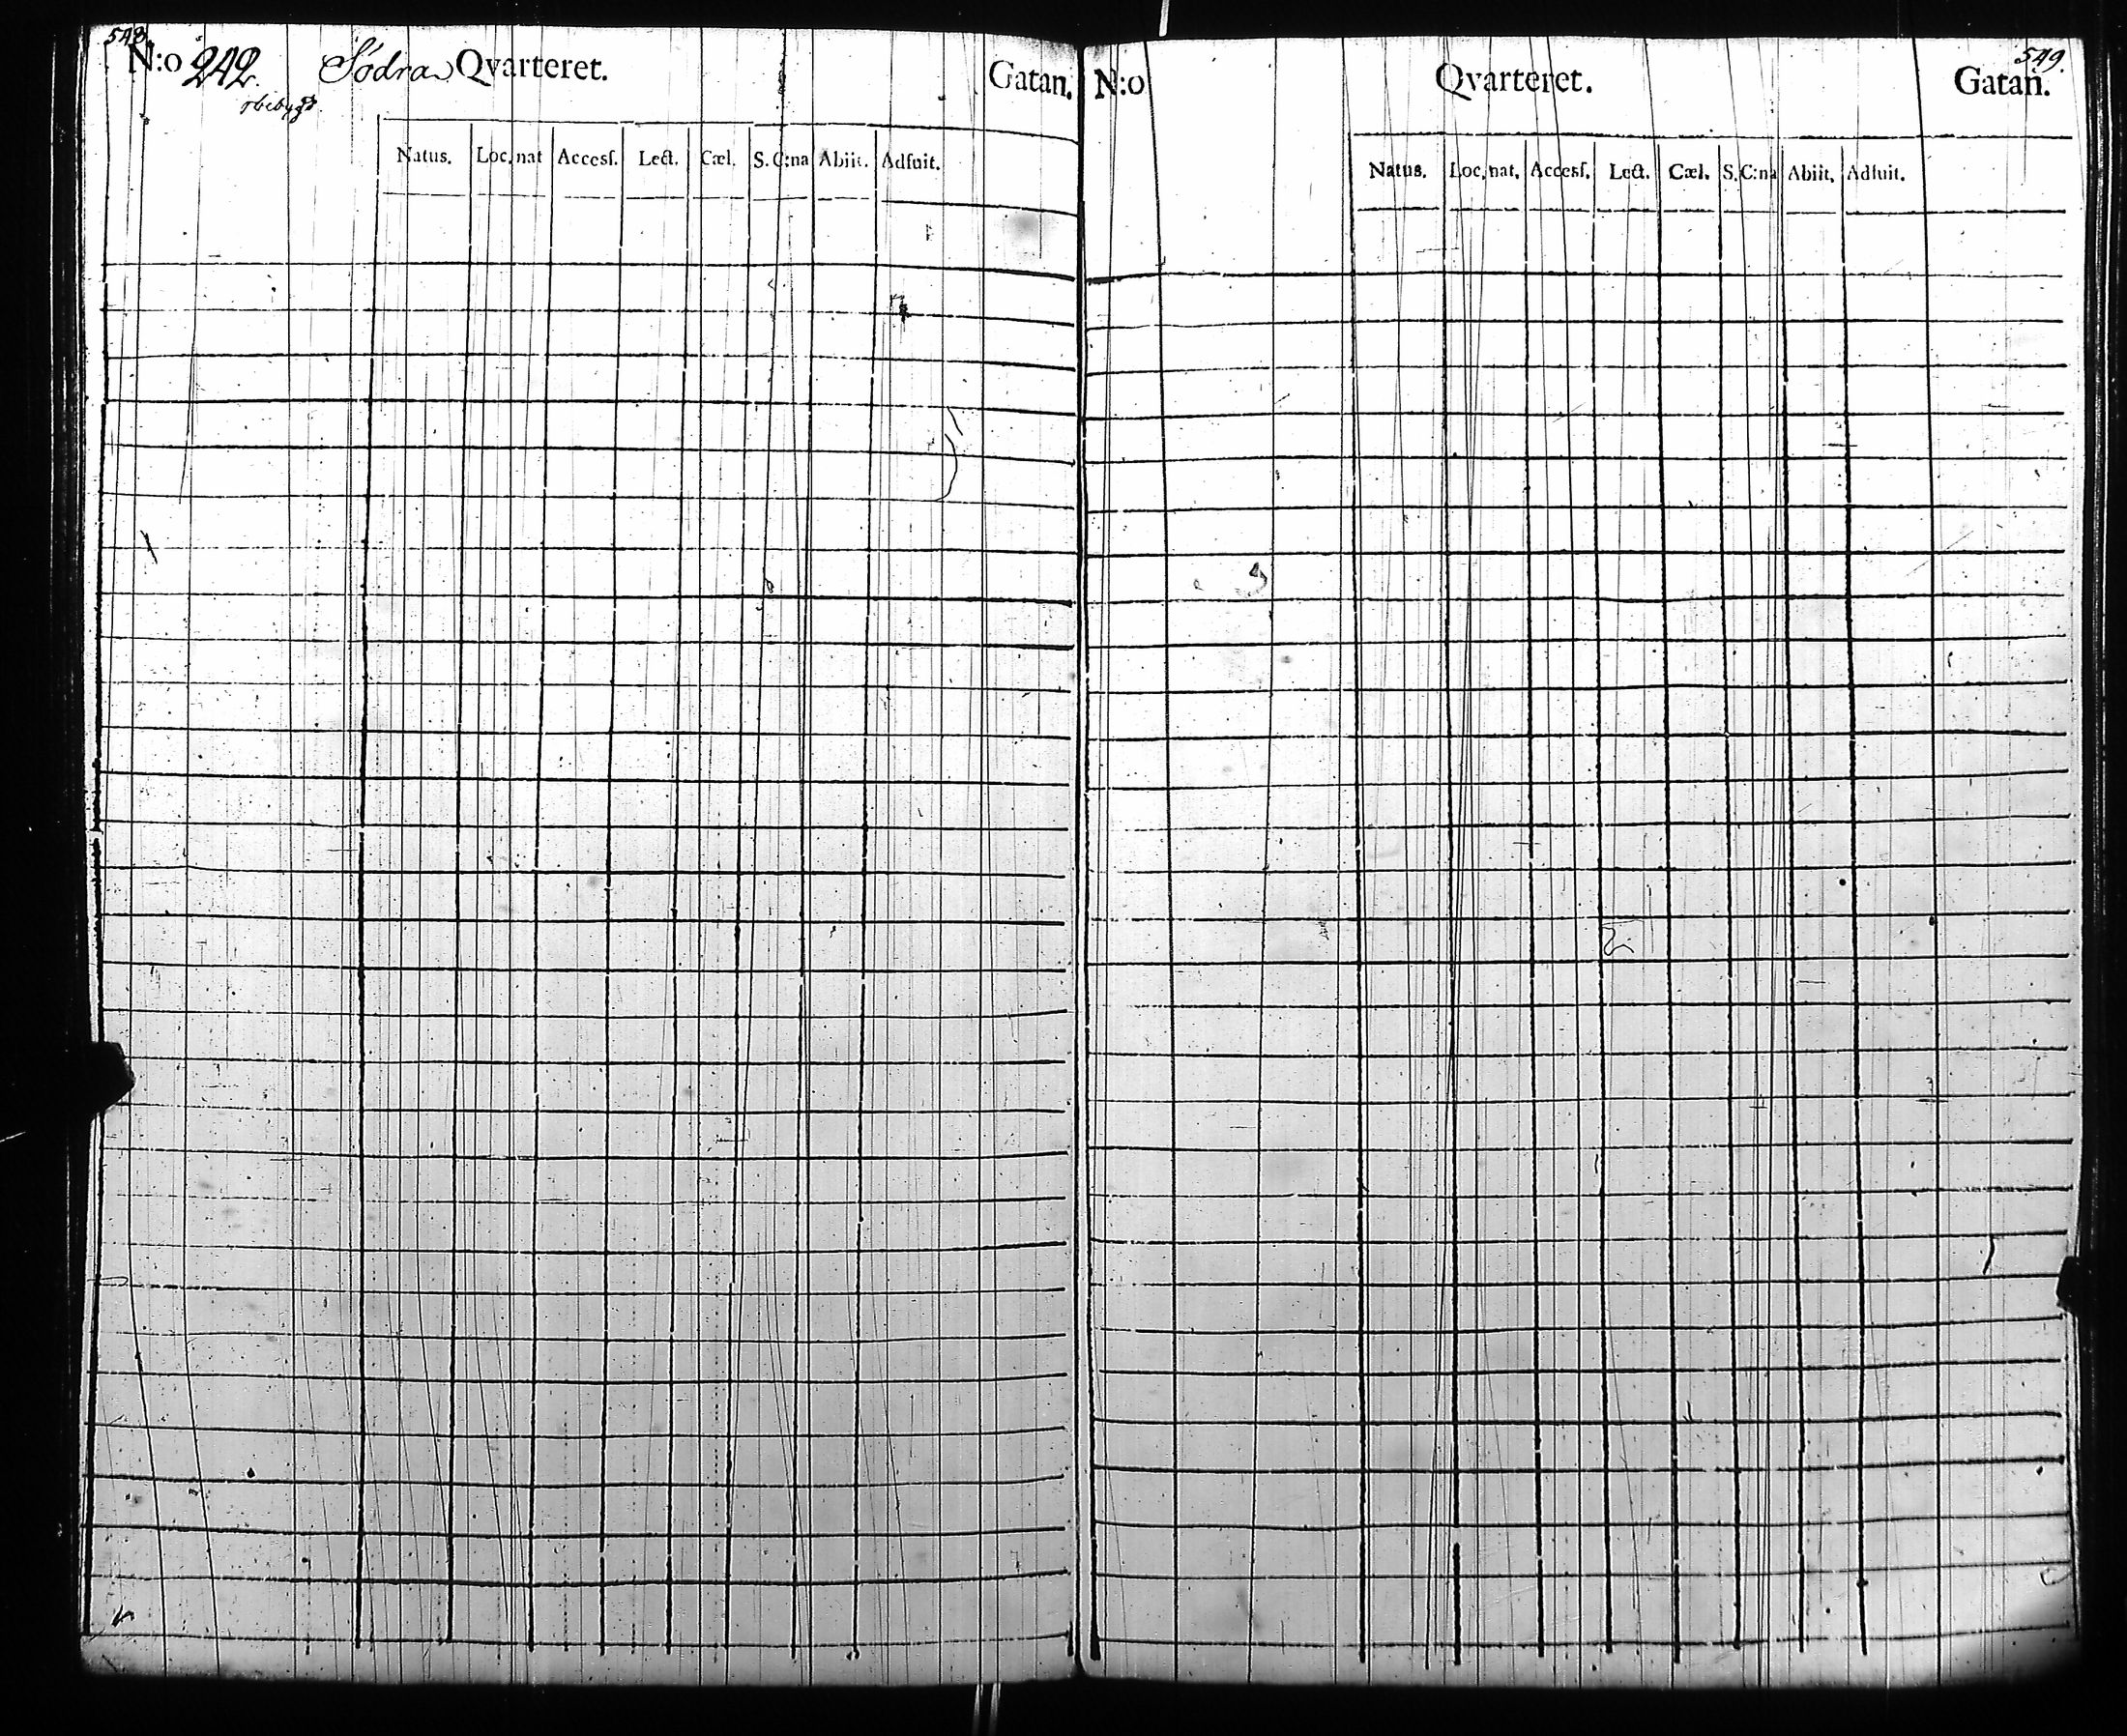 548.
N:o 242. Södra Qvarteret. Gatan.
obebygd.
Natus. Loc. nat Accesſ. Lect. Cæl. S. C:na Abiit. Adfuit.
549.
N:o Qvarteret. Gatan.
Natus. Loc. nat. Accesſ. Lect. Cæl. S. C:na Abiit. Adfuit.